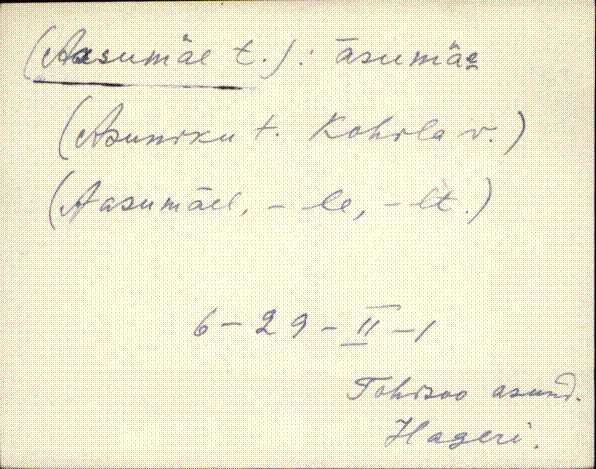 (Aasumäe t.): āsumäe
(Asuniku t. Kohila v.)
(Aasumäel, -le, -lt.)
6-29-II-1
Tohisoo asund.
Hageri.